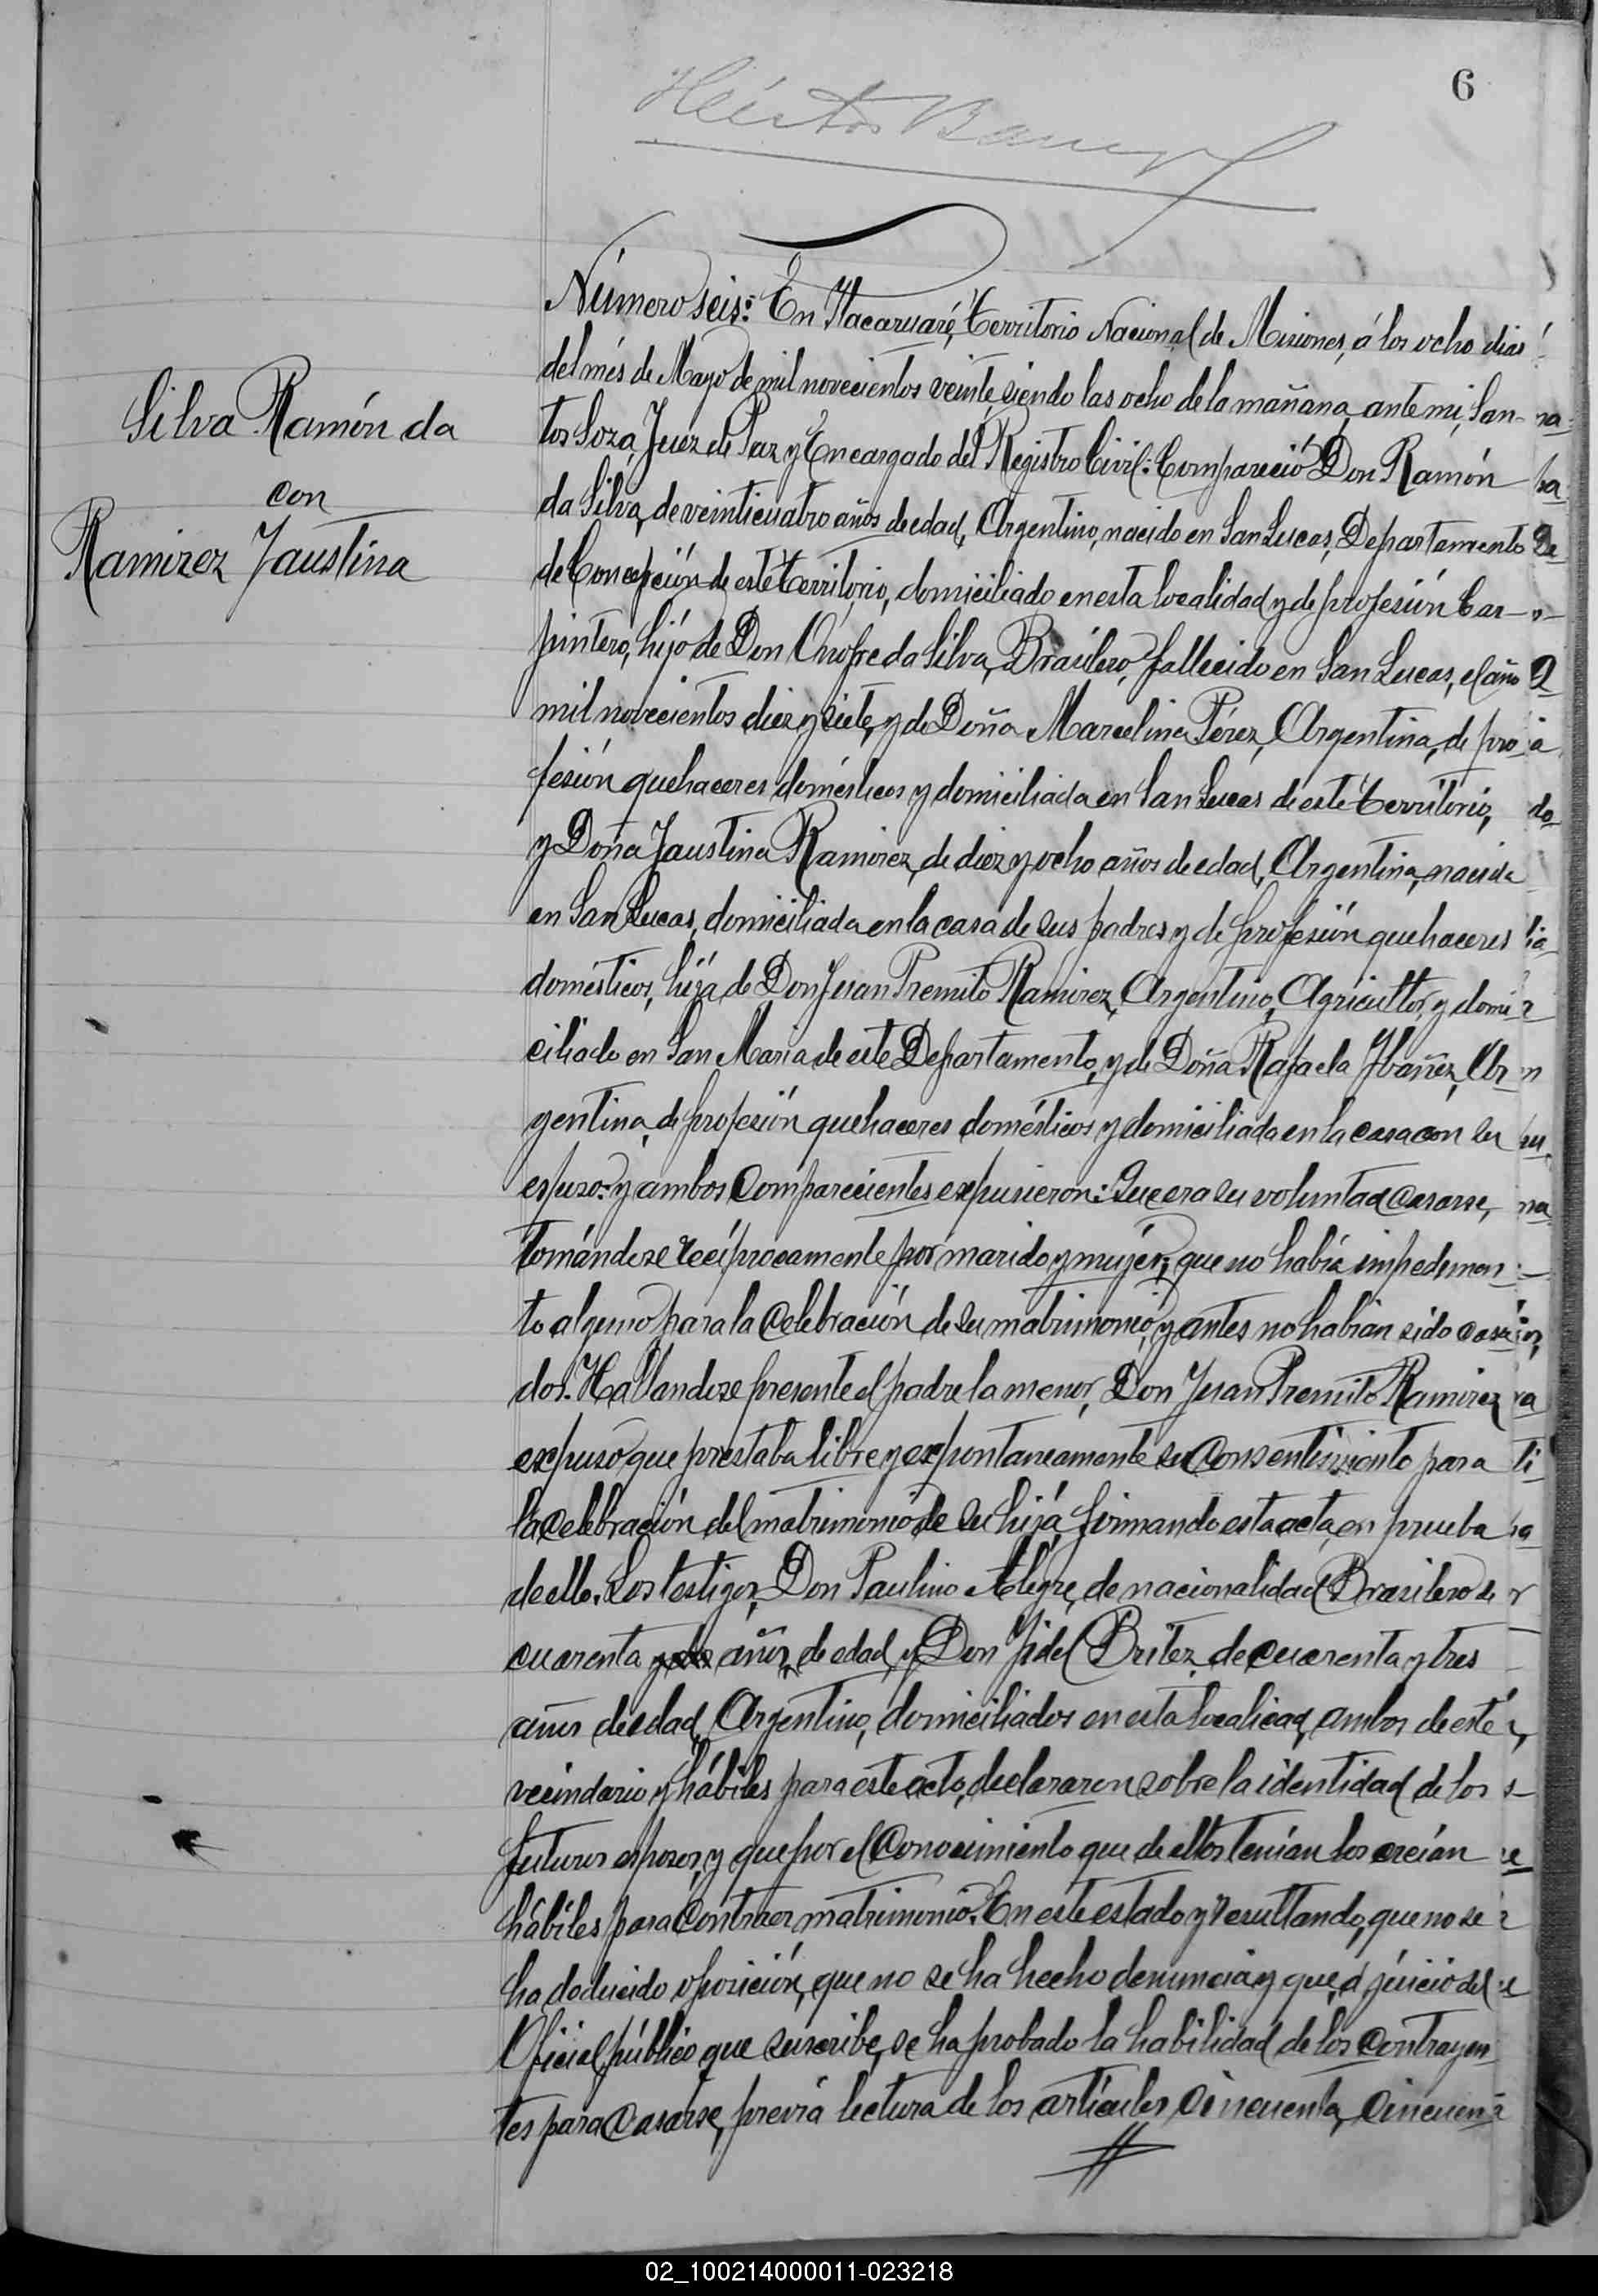 6
Héctor
Número seis: En Itacaruaré, Territorio Nacional de Misiones, á los ocho dias
del més de Mayo de mil novecientos veinte, siendo las ocho de la mañana, ante mi, San-
Silva Ramón da
con
Ramirez Faustina
tos Soza, Juez de Paz y Encargado del Registro Civil: Compareció Don Ramón
da Silva, de veinticuatro años de edad, Argentino, nacido en San Lucas, Departamento
de Concepción de este Territorio, domiciliado en esta localidad y de profesión Car-
pintero, hijo de Don Onofre da Silva, Brasilero, fallecido en San Lucas, el año
mil novecientos diez y siete, y de Doña Marcelina Pérez, Argentina, de pro
fesión quehaceres domésticos y domiciliada en San Lucas de este Territorio,
y Doña Faustina Ramirez, de diez y ocho años de edad, Argentina, nacida
en San Lucas, domiciliada en la casa de sus padres y de profesión quehaceres
domésticos, hija de Don Juan Premito Ramirez, Argentino, Agricultor, y domi
ciliado en San Maria de este Departamento, y de Doña Rafaela Ybañez, Ar
gentina, de profesión quehaceres domésticos y domiciliada en la casa con su
esposo: y ambos Comparecientes expusieron: Que era su voluntad casarse,
tomándose recíprocamente por marido y mujér; que no había impedimen
to alguno para la Celebración de su matrimonio, y antes no habian sido casa
dos. Hallandose presente el padre la menor, Don Juan Premito Ramirez
expuso que prestaba libre y expontaneamente su Consentimiento para
la Celebración del matrimonio de su hijá, firmando esta acta, en prueba
de ello. Los testigos, Don Paulino Alegre, de nacionalidad Brasilero de
cuarenta años, de edad, y Don Fidel Britez, de cuarenta y tres
años de edad, Argentino, domiciliados en esta localicad, ambos de este
vecindario y hábiles para este acto, declararon sobre la identidad de los
futuros esposos, y que por el Conocimiento que de ellos tenían los creían
hábiles para Contraer matrimonio. En este estado y resultando, que no se
ha deducido oposición, que no se ha hecho denuncia y que, á júicio del
Oficial público que suscribe, se ha probado la habilidad de los Contrayen
tes para Casarse, previa lectura de los artículos Cincuenta, Cincuen
02_100214000011-023218